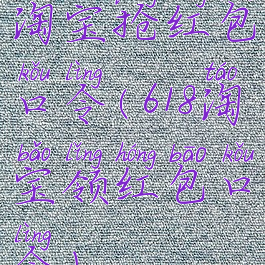 淘宝抢红包
kǒu lìng táo
口令(618淘
bǎo lǐng hóng bāo kǒu
宝领红包口
lìng
令)